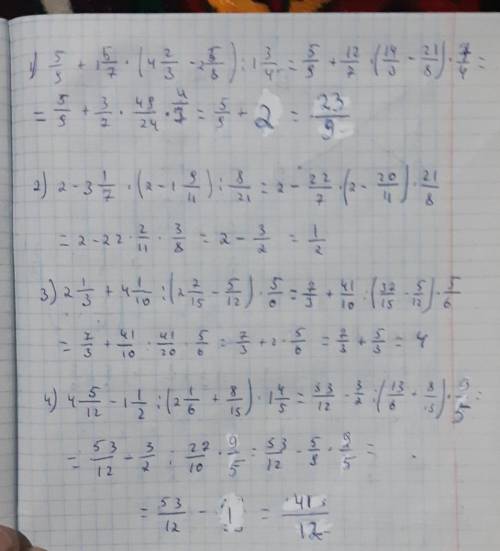 1) 5/9 + 1 5/7 · (4 2/3 - 2 5/8) : 1 3/4 = 5/9 + 12/7 · (14/3 - 21/8) · 7/4 =
= 5/9 + 3/7 · 49/24 · 4/7 = 5/9 + 2 = 23/9
2) 2 - 3 1/7 · (2 - 1 9/11) : 8/21 = 2 - 22/7 · (2 - 20/11) · 21/8
= 2 - 22 · 2/11 · 3/8 = 2 - 3/2 = 1/2
3) 2 1/3 + 4 1/10 : (2 7/15 - 5/12) · 5/6 = 7/3 + 41/10 : (32/15 - 5/12) · 5/6
= 7/3 + 41/10 · 41/20 · 5/6 = 7/3 + 2 · 5/6 = 7/3 + 5/3 = 4
4) 4 5/12 - 1 1/2 : (2 1/6 + 8/15) · 1 4/5 = 53/12 - 3/2 : (13/6 + 8/15) · 9/5 =
= 53/12 - 3/2 : 27/10 · 9/5 = 53/12 - 5/9 · 9/5 =
= 53/12 - 1 = 41/12